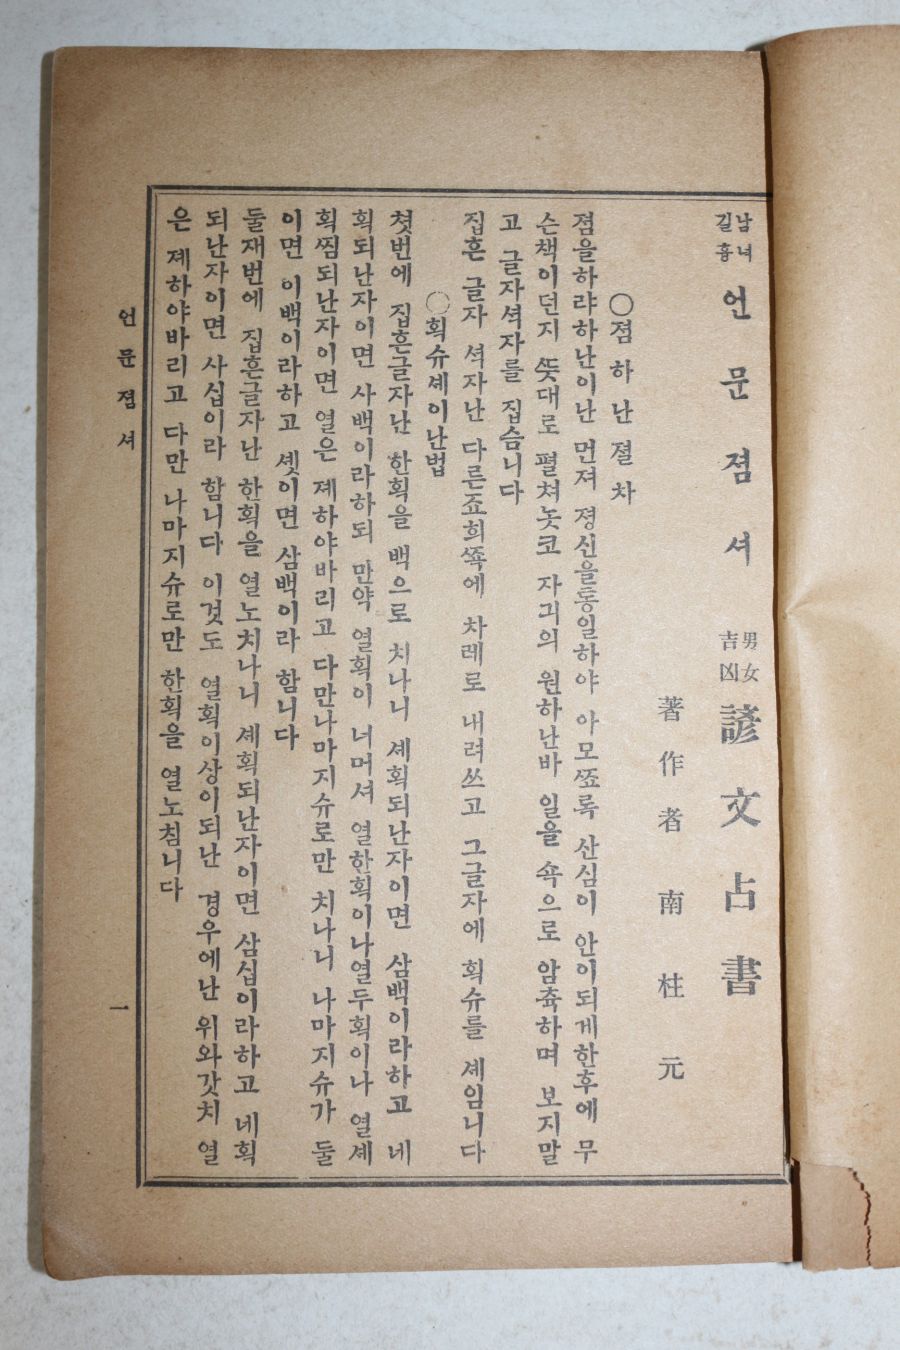 남녀길흉 언문졈셔 男女吉凶 諺文占書
著作者 南柱元
○졈하난졀차
졈을하랴하난이난 먼져 졍신을통일하야 아모ᄶᅩ록 산심이 안이되게한후에 무
슨책이던지 ᄯᅳᆺ대로 펼쳐놋코 자긔의 원하난바 일을 속으로 암츅하며 보지말
고 글자셔자를 집슴니다
집흔 글자 셔자난 다른죠희ᄶᅩᆨ에 차레로 내려쓰고 그글자에 획슈를 셰임니다
○획슈셰이난법
쳣번에 집흔글자난 한획을 백으로 치나니 셰획되난자이면 삼백이라하고 네
획되난자이면 사백이라하되 만약 열획이 너머셔 열한획이나열두획이나 열셰
획찜되난자이면 열은 졔하야바리고 다만나마지슈로만 치나니 나마지슈가 둘
이면 이백이라하고 솃이면 삼백이라 함니다
둘재번에 집흔글자난 한획을 열노치나니 셰획되난자이면 삼십이라하고 네획
되난자이면 사십이라 함니다 이것도 열획이상이되난 경우에난 위와갓치 열
은 졔하야바리고 다만 나마지슈로만 한획을 열노침니다
언문졈셔
一